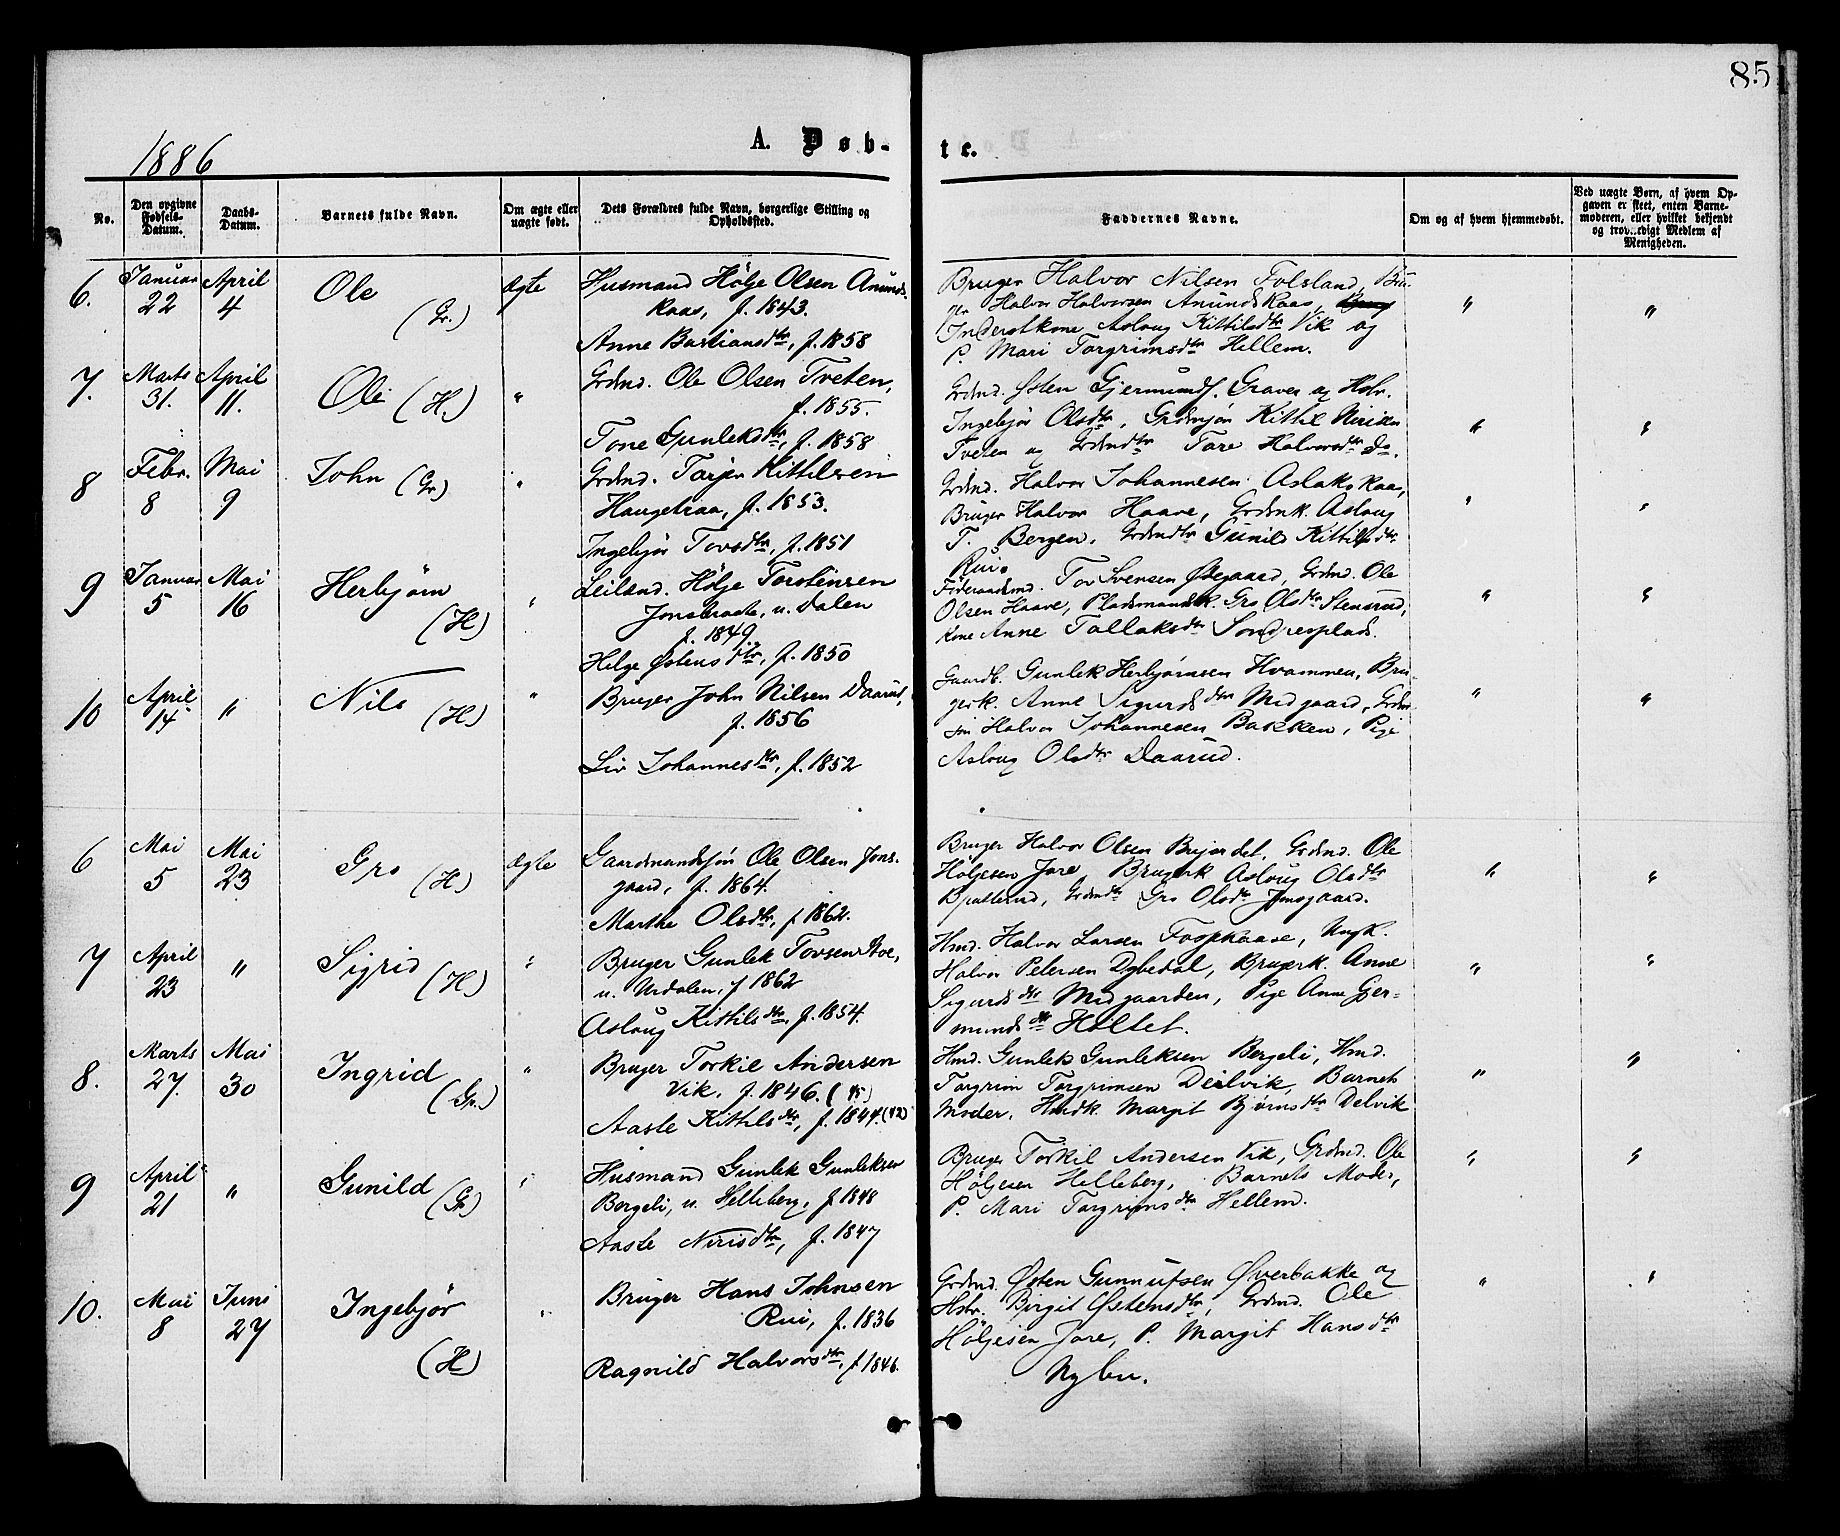 85
1886
A. Døb-
te.
No.
Den opgivne Fødsels-Datum.
Daabs-Datum.
Barnets fulde Navn.
Om ægte eller uægte født.
Dets Forældres fulde Navn, borgerlige Stilling og Opholdssted.
Faddernes Navne.
Om og af hvem hjemmedøbt.
Ved uægte Børn, af hvem Opgaven er skeet, enten Barnemoderen, eller hvilket bekjendt og troværdigt Medlem af Menigheden.
6. Januar 22 April 4 Ole (Gr.) Ægte
Husmand Hølje Olsen Anunds-
kaas, f. 1843.
Anne Bastiansdtr, f. 1858
Bruger Halvor Nilsen Folsland, Bru-
ger Halvor Halvorsen Anundskaas,
Inderstkone Aslaug Kittilsdtr Vik og
P. Mari Torgrimsdtr Hellem.
" "
7. Marts 31. April 11. Ole (H.) "
Grdmd. Ole Olsen Tveten,
f. 1855.
Tone Gunleksdtr, f. 1858
Grdmd. Østen Gjermunds. Graver og Hstr.
Ingebjør Olsdtr, Grdmsøn Kittil
Tveten og Grdmdtr Tore Halvorsdtr Do.
" "
8 Febr. 8 Mai 9 John (Gr.) "
Grdmd. Tarjer Kittilsen
Haugetraa, f. 1853.
Ingebjør Tovsdtr, f. 1851
Grdmd. Halvor Johannesen Aslakskaas,
Bruger Halvor Haave, Grdmk. Aslaug
T. Bergen, Grdmdtr Gunil Kittilsdtr
Rui.
" "
9 Januar 5 Mai 16 Herbjørn (H) "
Leiland. Hølje Torstensen
Jonsbraate, u. Dalen
f. 1849
Helge Østensdtr, f. 1850
Føderaadsmd. Tor Svensen Østegaard, Grdmd. Ole
Olsen Haave, Pladsmandsk. Gro Olsdtr Stensrud,
Kone Anne Tallaksdtr Sondresplads.
" "
10 April 14 " Nils (H.) "
Bruger John Nilsen Daarud,
f. 1856
Liv Johannesdtr, f. 1852
Gaardb. Gunlek Herbjørnsen Hvammen, Bru-
gerk. Anne Sigurdsdtr Midgaard, Grdm-
søn Halvor Johannesen Bakken, Pige
Aslaug Olsdtr Daarud.
" "
6 Mai 5 Mai 23 Gro (H.) Ægte
Gaardmandssøn Ole Olsen Jons-
gaard, f. 1864.
Marthe Olsdtr, f 1862.
Bruger Halvor Olsen Brejerdet, Grdmd. Ole
Høljesen Jore, Brugerk Aslaug Olsdtr
Bjotterud, Grdmdtr Gro Olsdtr Jonsgaard.
" "
7 April 23 " Sigrid (H) "
Bruger Gunlek Tovsen Roe,
u. Urdalen, f 1862
Aslaug Kittilsdtr, f. 1854.
Hmd. Halvor Larsen Fospkaase, Ungk.
Halvor Petersen Dybedal, Brugerk. Anne
Sigurdsdtr Midgaarden, Pige Anne Gjer-
mundsdtr Holtet.
" "
8. Marts 27. Mai 30 Ingrid (Gr.) "
Bruger Torkil Andersen
Vik, f. 1846. (45)
Aaste Kittilsdtr, f. 1844. (42)
Hmd. Gunlek Gunleksen Bergeli, Hmd.
Torgrim Torgrimsen Deilvik, Barnets
Moder, Hmdk. Margit Bjørnsdtr Delvik
" "
9 April 21 " Gunild (Gr) "
Husmand Gunlek Gunleksen
Bergeli, u. Helleberg, f. 1848
Aaste Nirisdtr, f. 1847
Bruger Torkil Andersen Vik, Grdmd. Ole
Høljesen Helleberg, Barnets Moder,
P. Mari Torgrimsdtr Hellem.
" "
10. Mai 8 Juni 27 Ingebjør (H) "
Bruger Hans Johnsen
Rui, f. 1836
Ragnild Halvorsdtr, f 1846.
Grdmd. Østen Gunnufsen Øverbakke og
Hstr. Birgit Østensdtr, Grdmd. Ole
Høljesen Jore, P. Margit Hansdtr
Nybu.
" "